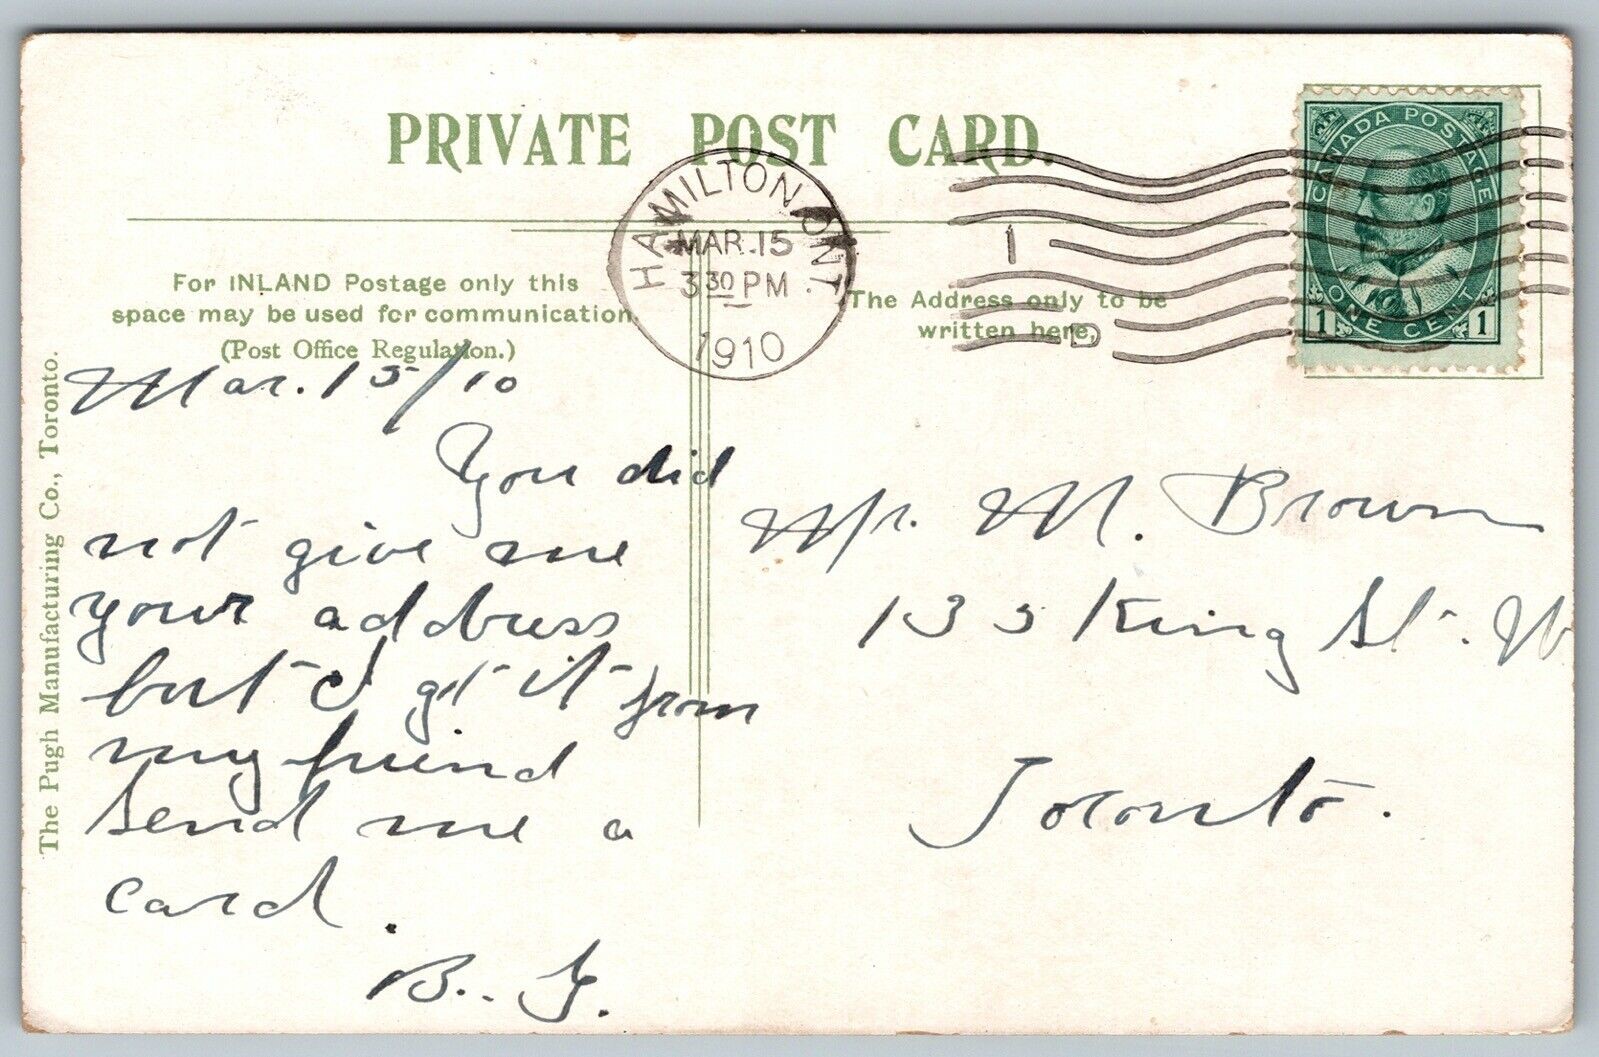 PRIVATE POST CARD.
HAMILTON, ONT.
MAR. 15
3 30 PM
1910
1
D
CANADA POSTAGE
ONE CENT
1 1
For INLAND Postage only this
space may be used for communication.
(Post Office Regulation.)
The Address only to be
written here.
The Pugh Manufacturing Co., Toronto.
Mar. 15/10
You did
not give me
your address
but I got it from
my friend
send me a
card.
B. Y.
Mr. M. Brown
135 King St. W
Toronto.